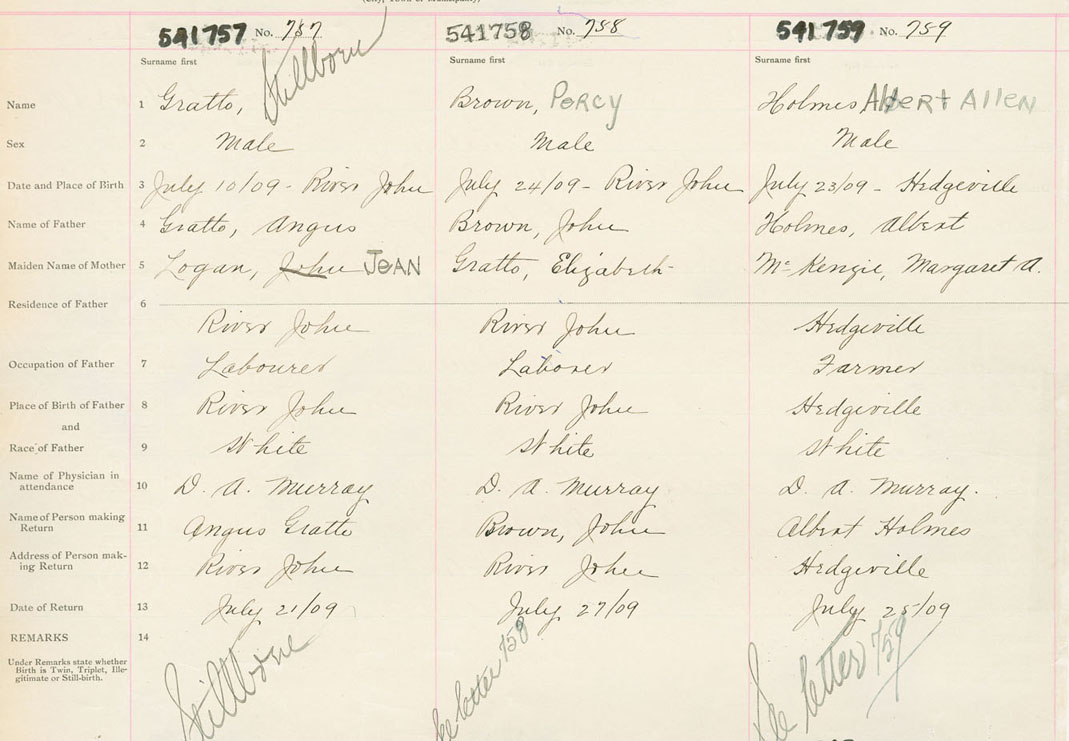 (City, Town or Municipality)
541757 No. 757 541758 No. 758 541759 No. 759
Surname first Surname first Surname first
Name 1 Gratto, Stillborn Brown, Percy Holmes Albert Allen
Sex 2 Male Male Male
Date and Place of Birth 3 July 10/09 - River John July 24/09 - River John July 23/09 - Hedgeville
Name of Father 4 Gratto, Angus Brown, John Holmes, Albert
Maiden Name of Mother 5 Logan, John JEAN Gratto, Elizabeth Mc Kenzie, Margaret A.
Residence of Father 6 River John River John Hedgeville
Occupation of Father 7 Labourer Laborer Farmer
Place of Birth of Father 8 River John River John Hedgeville
and
Race of Father 9 White White White
Name of Physician in
attendance 10 D. A. Murray D. A. Murray D. A. Murray.
Name of Person making
Return 11 Angus Gratto Brown, John Albert Holmes
Address of Person mak-
ing Return 12 River John River John Hedgeville
Date of Return 13 July 21/09 July 27/09 July 25/09
REMARKS 14 Stillborne See letter 758 See letter 759
Under Remarks state whether
Birth is Twin, Triplet, Ille-
gitimate or Still-birth.